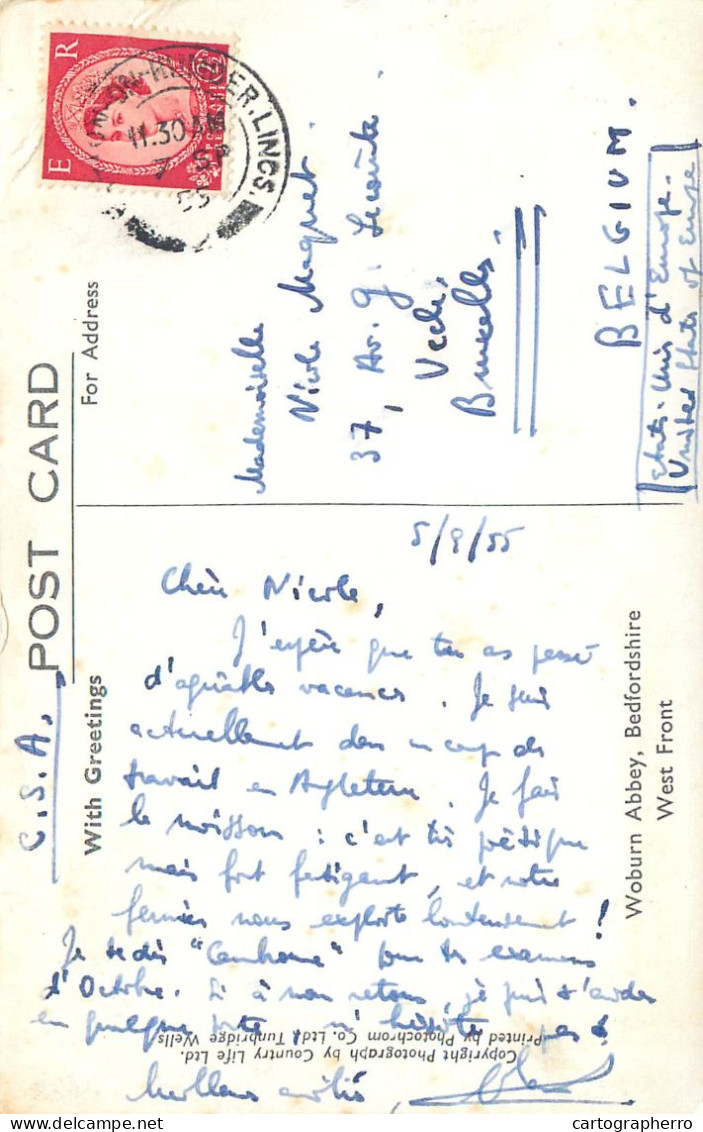 POST CARD
C.S.A.
With Greetings
For Address
E R
BARTON-ON-HUMBER. LINCS.
11.30 AM
7 SP
55
Mademoiselle
Nicole Maquet
37, Av. G. Lecointe
Uccle,
Bruxelles.
BELGIUM.
Etats-Unis d'Europe.
United States of Europe
5/9/55
Chère Nicole,
J'espère que tu as passé
d'agréables vacances. Je suis
actuellement dans un camp de
travail en Angleterre. Je fais
la moisson : c'est très poétique
mais fort fatigant, et notre
fermier nous exploite honteusement !
Je te dis "Cambronne" pour tes examens
d'Octobre. Si à mon retour, je puis t'aider
en quelque sorte, n'hésite pas !
Meilleures amitiés,
Woburn Abbey, Bedfordshire
West Front
Copyright Photograph by Country Life Ltd.
Printed by Photochrom Co. Ltd., Tunbridge Wells
cartographerro